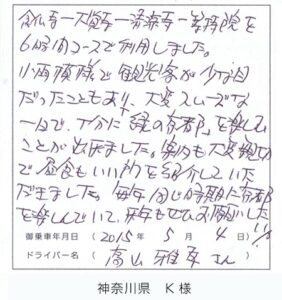 6時間コースで利用しました。
小雨模様で観光客が少な目
だったこともあり、大変スムーズな
一日で、十分に「緑の京都」を楽しむ
ことが出来ました。案内も大変親切
で昼食もいい所を紹介していた
だきました。毎年同じ時期に京都
を楽しんでいて、来年もぜひお願いしたい
です
御乗車年月日 ( 2015年 5月 4日 )
ドライバー名 ( 高山 雅幸 さん )
神奈川県 K様